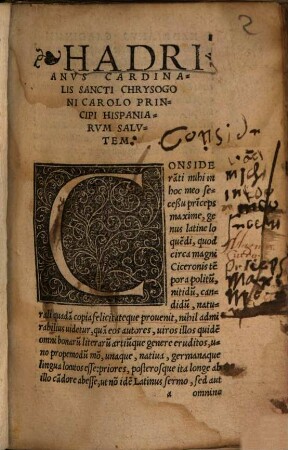 2
HADRI
ANVS CARDINA-
LIS SANCTI CHRYSOGO
NI CAROLO PRIN-
CIPI HISPANIA-
RVM SALV-
TEM.
Consid
CONSIDE
rāti mihi in
hoc meo se-
cessu prīceps
maxime, ge
nus latine lo
quēdi, quod
circa magni
Ciceronis tē
pora politū,
nitidū, can-
didū, natu-
rali quadā copia felicitateque prouenit, nihil admi
rabilius uidetur, quā eos autores, uiros illos quidē
omni bonarū literarū artiūque genere eruditos, u-
no propemodū mō, unaque, natiua, germanaque
lingua loquutos esse: priores, posterosque ita longe ab
illo cādore abesse, ut nō idē Latinus sermo, sed aut
a omnino